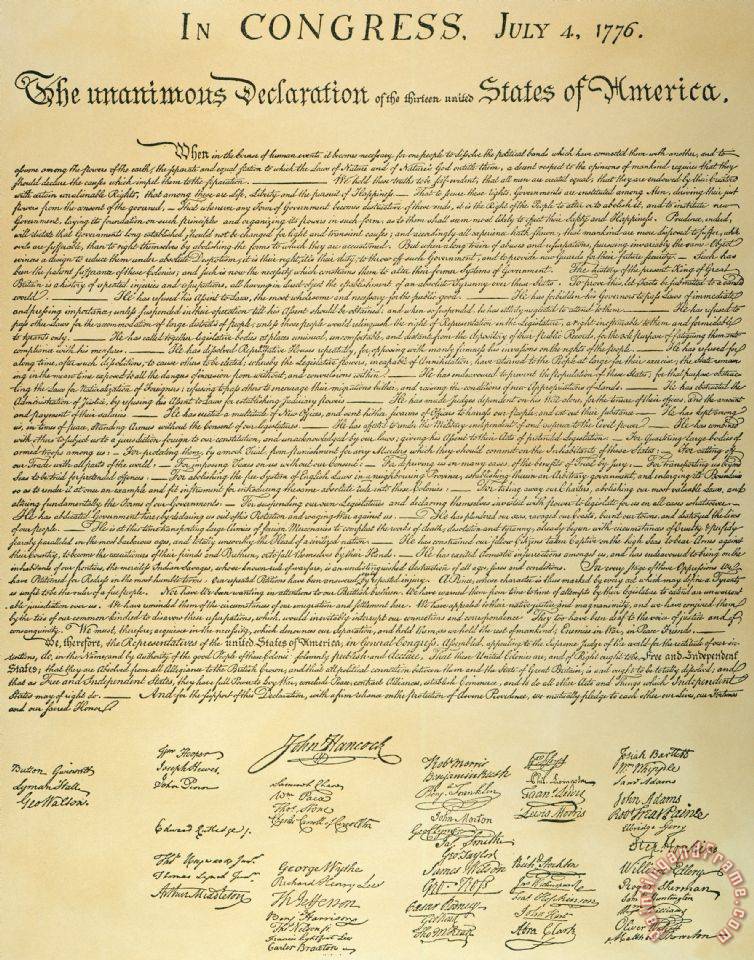 IN CONGRESS, JULY 4, 1776.
The unanimous Declaration of the thirteen united States of America,
When in the Course of human events it becomes necessary for one people to dissolve the political bands which have connected them with another, and to
assume among the powers of the earth, the separate and equal station to which the Laws of Nature and of Nature's God entitle them, a decent respect to the opinions of mankind requires that they
should declare the causes which impel them to the separation. We hold these truths to be self-evident, that all men are created equal, that they are endowed by their Creator
with certain unalienable Rights, that among these are Life, Liberty and the pursuit of Happiness. That to secure these rights, Governments are instituted among Men, deriving their just
powers from the consent of the governed, That whenever any Form of Government becomes destructive of these ends, it is the Right of the People to alter or to abolish it, and to institute new
Government, laying its foundation on such principles and organizing its powers in such form, as to them shall seem most likely to effect their Safety and Happiness. Prudence, indeed,
will dictate that Governments long established should not be changed for light and transient causes; and accordingly all experience hath shewn, that mankind are more disposed to suffer, while
evils are sufferable, than to right themselves by abolishing the forms to which they are accustomed. But when a long train of abuses and usurpations, pursuing invariably the same Object
evinces a design to reduce them under absolute Despotism, it is their right, it is their duty, to throw off such Government, and to provide new Guards for their future security. Such has
been the patient sufferance of these Colonies; and such is now the necessity which constrains them to alter their former Systems of Government. The history of the present King of Great
Britain is a history of repeated injuries and usurpations, all having in direct object the establishment of an absolute Tyranny over these States. To prove this, let Facts be submitted to a candid
world. He has refused his Assent to Laws, the most wholesome and necessary for the public good. He has forbidden his Governors to pass Laws of immediate
and pressing importance, unless suspended in their operation till his Assent should be obtained; and when so suspended, he has utterly neglected to attend to them. He has refused to
pass other Laws for the accommodation of large districts of people, unless those people would relinquish the right of Representation in the Legislature, a right inestimable to them and formidable
to tyrants only. He has called together legislative bodies at places unusual, uncomfortable, and distant from the depository of their Public Records, for the sole purpose of fatiguing them into
compliance with his measures. He has dissolved Representative Houses repeatedly, for opposing with manly firmness his invasions on the rights of the people. He has refused for
a long time, after such dissolutions, to cause others to be elected; whereby the Legislative powers, incapable of Annihilation, have returned to the People at large for their exercise; the State remain-
ing in the mean time exposed to all the dangers of invasion from without, and convulsions within. He has endeavoured to prevent the population of these States; for that purpose obstruc-
ting the Laws for Naturalization of Foreigners; refusing to pass others to encourage their migrations hither, and raising the conditions of new Appropriations of Lands. He has obstructed the
Administration of Justice, by refusing his Assent to Laws for establishing Judiciary powers. He has made Judges dependent on his Will alone, for the tenure of their offices, and the amount
and payment of their salaries. He has erected a multitude of New Offices, and sent hither swarms of Officers to harrass our people, and eat out their substance. He has kept among
us, in times of peace, Standing Armies without the Consent of our legislatures. He has affected to render the Military independent of and superior to the Civil power. He has combined
with others to subject us to a jurisdiction foreign to our constitution, and unacknowledged by our laws; giving his Assent to their Acts of pretended Legislation: For Quartering large bodies of
armed troops among us: For protecting them, by a mock Trial, from punishment for any Murders which they should commit on the Inhabitants of these States: For cutting off
our Trade with all parts of the world: For imposing Taxes on us without our Consent: For depriving us in many cases, of the benefits of Trial by Jury: For transporting us beyond
Seas to be tried for pretended offences: For abolishing the free System of English Laws in a neighbouring Province, establishing therein an Arbitrary government, and enlarging its Boundaries
so as to render it at once an example and fit instrument for introducing the same absolute rule into these Colonies: For taking away our Charters, abolishing our most valuable Laws, and
altering fundamentally the Forms of our Governments: For suspending our own Legislatures, and declaring themselves invested with power to legislate for us in all cases whatsoever.
He has abdicated Government here, by declaring us out of his Protection and waging War against us. He has plundered our seas, ravaged our Coasts, burnt our towns, and destroyed the lives
of our people. He is at this time transporting large Armies of foreign Mercenaries to compleat the works of death, desolation and tyranny, already begun with circumstances of Cruelty & perfidy
scarcely paralleled in the most barbarous ages, and totally unworthy the Head of a civilized nation. He has constrained our fellow Citizens taken Captive on the high Seas to bear Arms against
their Country, to become the executioners of their friends and Brethren, or to fall themselves by their Hands. He has excited domestic insurrections amongst us, and has endeavoured to bring on the
inhabitants of our frontiers, the merciless Indian Savages, whose known rule of warfare, is an undistinguished destruction of all ages, sexes and conditions. In every stage of these Oppressions We
have Petitioned for Redress in the most humble terms: Our repeated Petitions have been answered only by repeated injury. A Prince, whose character is thus marked by every act which may define a Tyrant,
is unfit to be the ruler of a free people. Nor have We been wanting in attentions to our Brittish brethren. We have warned them from time to time of attempts by their legislature to extend an unwarrant-
able jurisdiction over us. We have reminded them of the circumstances of our emigration and settlement here. We have appealed to their native justice and magnanimity, and we have conjured them
by the ties of our common kindred to disavow these usurpations, which, would inevitably interrupt our connections and correspondence. They too have been deaf to the voice of justice and of
consanguinity. We must, therefore, acquiesce in the necessity, which denounces our Separation, and hold them, as we hold the rest of mankind, Enemies in War, in Peace Friends.
We, therefore, the Representatives of the united States of America, in General Congress, Assembled, appealing to the Supreme Judge of the world for the rectitude of our in-
tentions, do, in the Name, and by Authority of the good People of these Colonies, solemnly publish and declare, That these United Colonies are, and of Right ought to be Free and Independent
States; that they are Absolved from all Allegiance to the British Crown, and that all political connection between them and the State of Great Britain, is and ought to be totally dissolved; and
that as Free and Independent States, they have full Power to levy War, conclude Peace, contract Alliances, establish Commerce, and to do all other Acts and Things which Independent
States may of right do. And for the support of this Declaration, with a firm reliance on the protection of divine Providence, we mutually pledge to each other our Lives, our Fortunes
and our sacred Honor.
Button Gwinnett
Lyman Hall
Geo Walton.
Wm Hooper
Joseph Hewes,
John Penn
Edward Rutledge
Thos Heyward Junr.
Thomas Lynch Junr.
Arthur Middleton
John Hancock
Samuel Chase
Wm Paca
Thos Stone
Charles Carroll of Carrollton
George Wythe
Richard Henry Lee
Th Jefferson
Benj Harrison
Thos Nelson jr.
Francis Lightfoot Lee
Carter Braxton
Robt Morris
Benjamin Rush
Benj. Franklin
John Morton
Geo Clymer
Jas. Smith
Geo. Taylor
James Wilson
Geo. Ross
Caesar Rodney
Geo Read
Tho M:Kean
Wm Floyd
Phil. Livingston
Frans. Lewis
Lewis Morris
Richd. Stockton
Jno Witherspoon
Fras. Hopkinson
John Hart
Abra Clark
Josiah Bartlett
Wm Whipple
Saml Adams
John Adams
Robt Treat Paine
Elbridge Gerry
Step Hopkins
William Ellery
Roger Sherman
Sam Huntington
Wm Williams
Oliver Wolcott
Matthew Thornton
paintingandframe.com